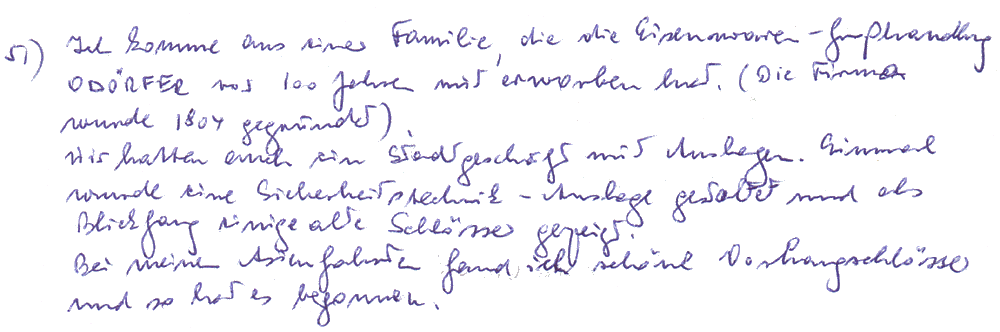 51) Ich komme aus einer Familie, die die Eisenwaren-Großhandlung
ODÖRFER vor 100 Jahren mit erworben hat. (Die Firma
wurde 1804 gegründet).
Wir hatten auch ein Stadtgeschäft mit Auslagen. Einmal
wurde eine Sicherheitstechnik-Auslage gestaltet und als
Blickfang einige alte Schlösser gezeigt.
Bei meinen Asienfahrten fand ich schöne Vorhangschlösser
und so hat es begonnen.